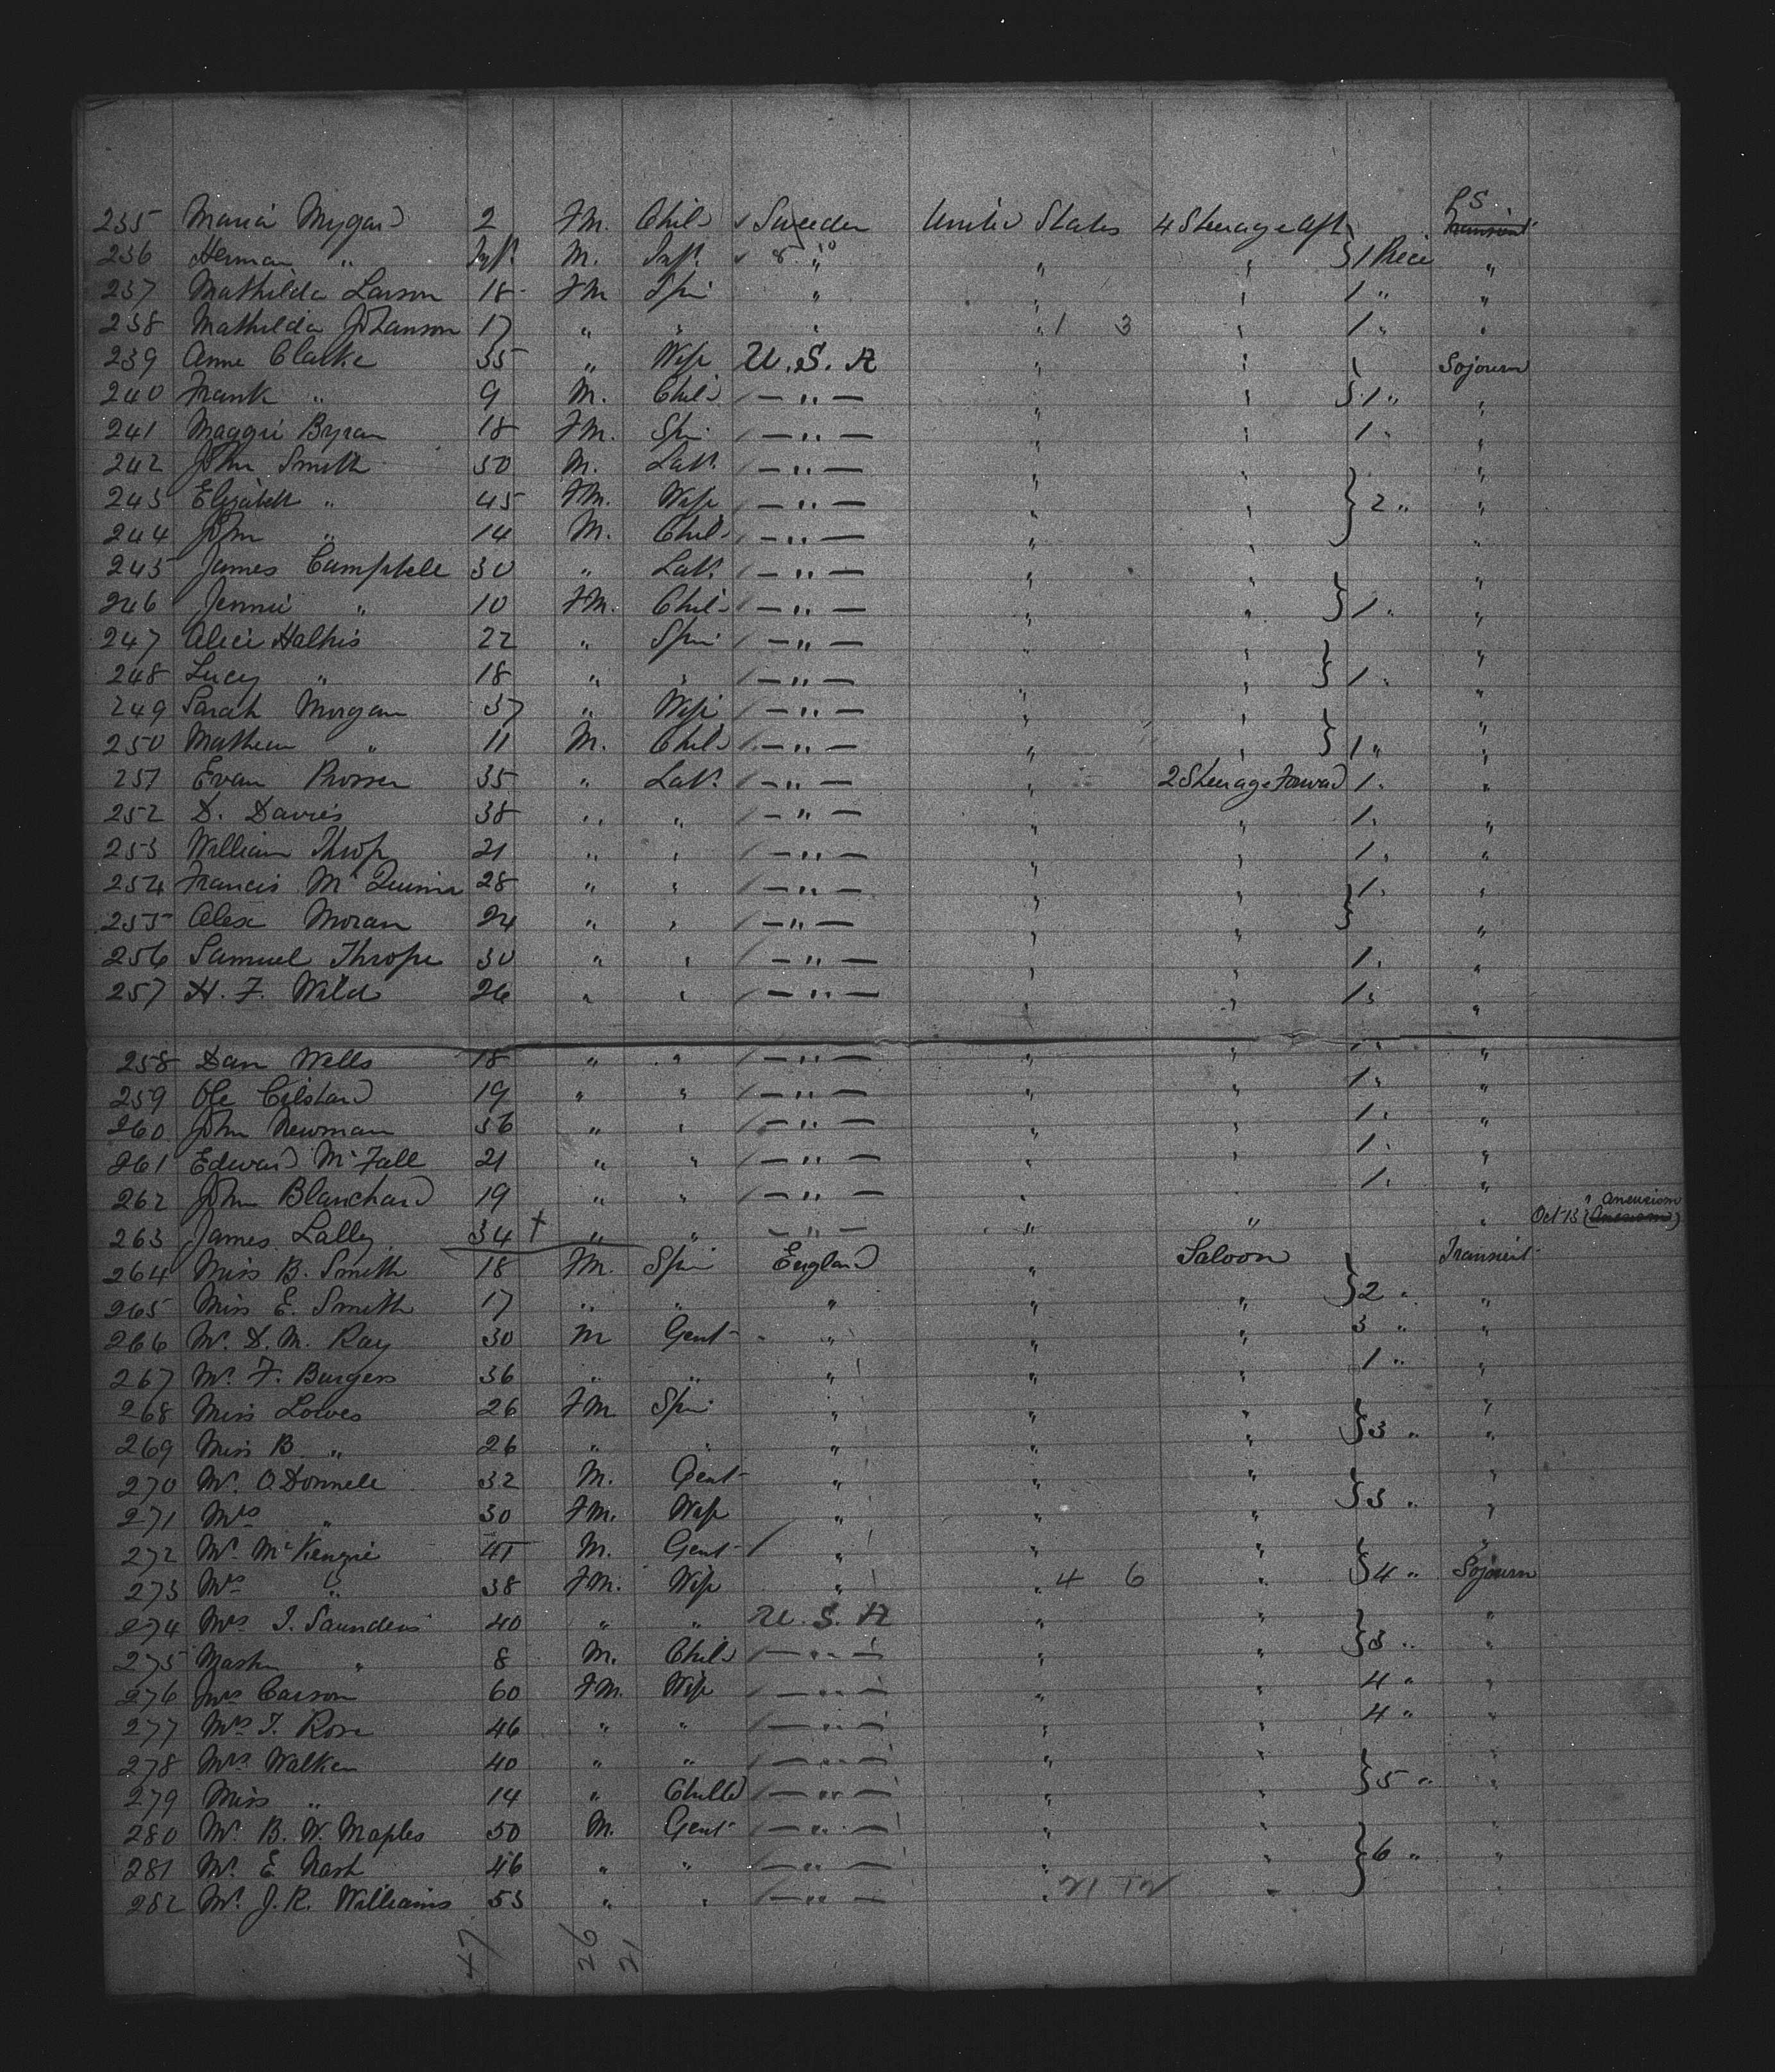 P.S.
235 Maria Mygard 2 FM. Child Sweden United States 4 Steerage Aft Transient
236 Herman " Inf. M. Inf. " " " 1 Piece "
237 Mathilda Larson 18 FM Spin " " " 1 " "
238 Mathilda Johanson 17 " " " " 1 3 " 1 " "
239 Anne Clarke 35 " Wife U.S.A " " Sojourn
240 Frank " 9 M. Child — " — " " 1 " "
241 Maggie Byran 18 FM. Spin — " — " " 1 " "
242 John Smith 50 M. Lab. — " — " " "
243 Elizabeth " 45 FM. Wife — " — " " 2 " "
244 John " 14 M. Child — " — " " "
245 James Campbell 30 " Lab. — " — " " "
246 Jennie " 10 FM. Child — " — " " 1 " "
247 Alice Halkis 22 " Spin — " — " " "
248 Lucy " 18 " " — " — " " 1 " "
249 Sarah Morgan 37 " Wife — " — " " "
250 Mathew " 11 M. Child — " — " " 1 " "
251 Evan Prosser 35 " Lab. — " — " 2 Steerage Forward 1 " "
252 D. Davies 38 " " — " — " " 1 " "
253 William Throp 21 " " — " — " " 1 " "
254 Francis Mc 28 " " — " — " " 1 " "
255 Alex Moran 24 " " — " — " " "
256 Samuel Thrope 30 " " — " — " " 1 " "
257 H. F. Wild 26 " " — " — " " 1 " "
258 Dan Wells 18 " " — " — " " 1 " "
259 Ole Cilstad 19 " " — " — " " 1 " "
260 John Newman 36 " " — " — " " 1 " "
261 Edward McFall 21 " " — " — " " 1 " "
262 John Blanchard 19 " " — " — " " 1 " "
Aneurism
263 James Lally 34 † " " — " — " " " Oct 13
264 Miss B. Smith 18 FM. Spin England " Saloon Transient
265 Miss E. Smith 17 " " " " " 2 " "
266 Mr. D. M. Ray 30 M Gent " " " 3 " "
267 Mr. F. Burgess 36 " " " " " 1 " "
268 Miss Lowes 26 FM Spin " " " "
269 Miss B " 26 " " " " " 3 " "
270 Mr. O'Donnell 32 M. Gent " " " "
271 Mrs " 30 FM. Wife " " " 3 " "
272 Mr. McKenzie 41 M. Gent " " " "
273 Mrs " 38 FM. Wife " " 4 6 " 4 " Sojourn
274 Mrs I. Saunders 40 " " U.S.A " " "
275 Master " 8 M. Child — " — " " 3 " "
276 Mrs Carson 60 FM. Wife — " — " " 4 " "
277 Mrs I. Rose 46 " " — " — " " 4 " "
278 Mrs Walker 40 " " — " — " " "
279 Miss " 14 " Child — " — " " 5 " "
280 Mr. B. W. Maples 50 M. Gent — " — " " "
281 Mr. E Nash 46 " " — " — " " 6 " "
282 Mr. J. R. Williams 53 " " — " — " 21 12 " "
47 26 21